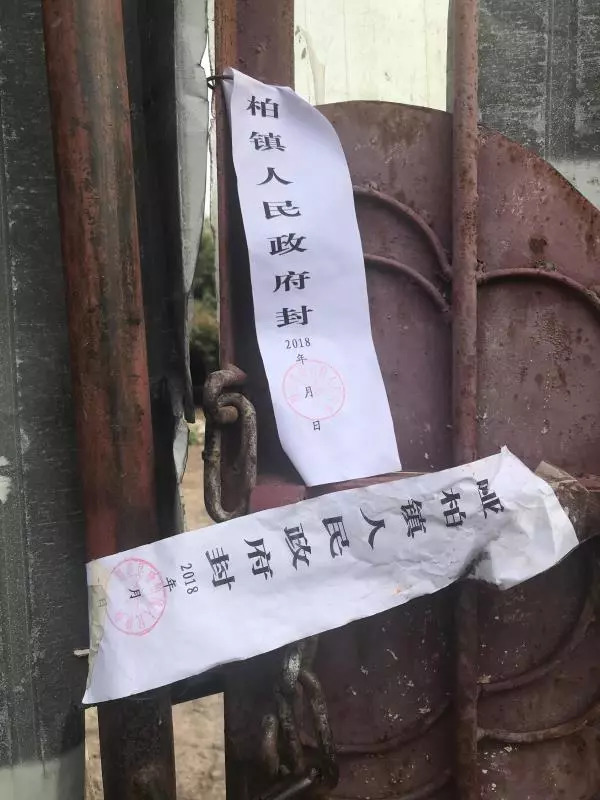 柏镇人民政府封
2018年月日
哑柏镇人民政府封
2018年月日